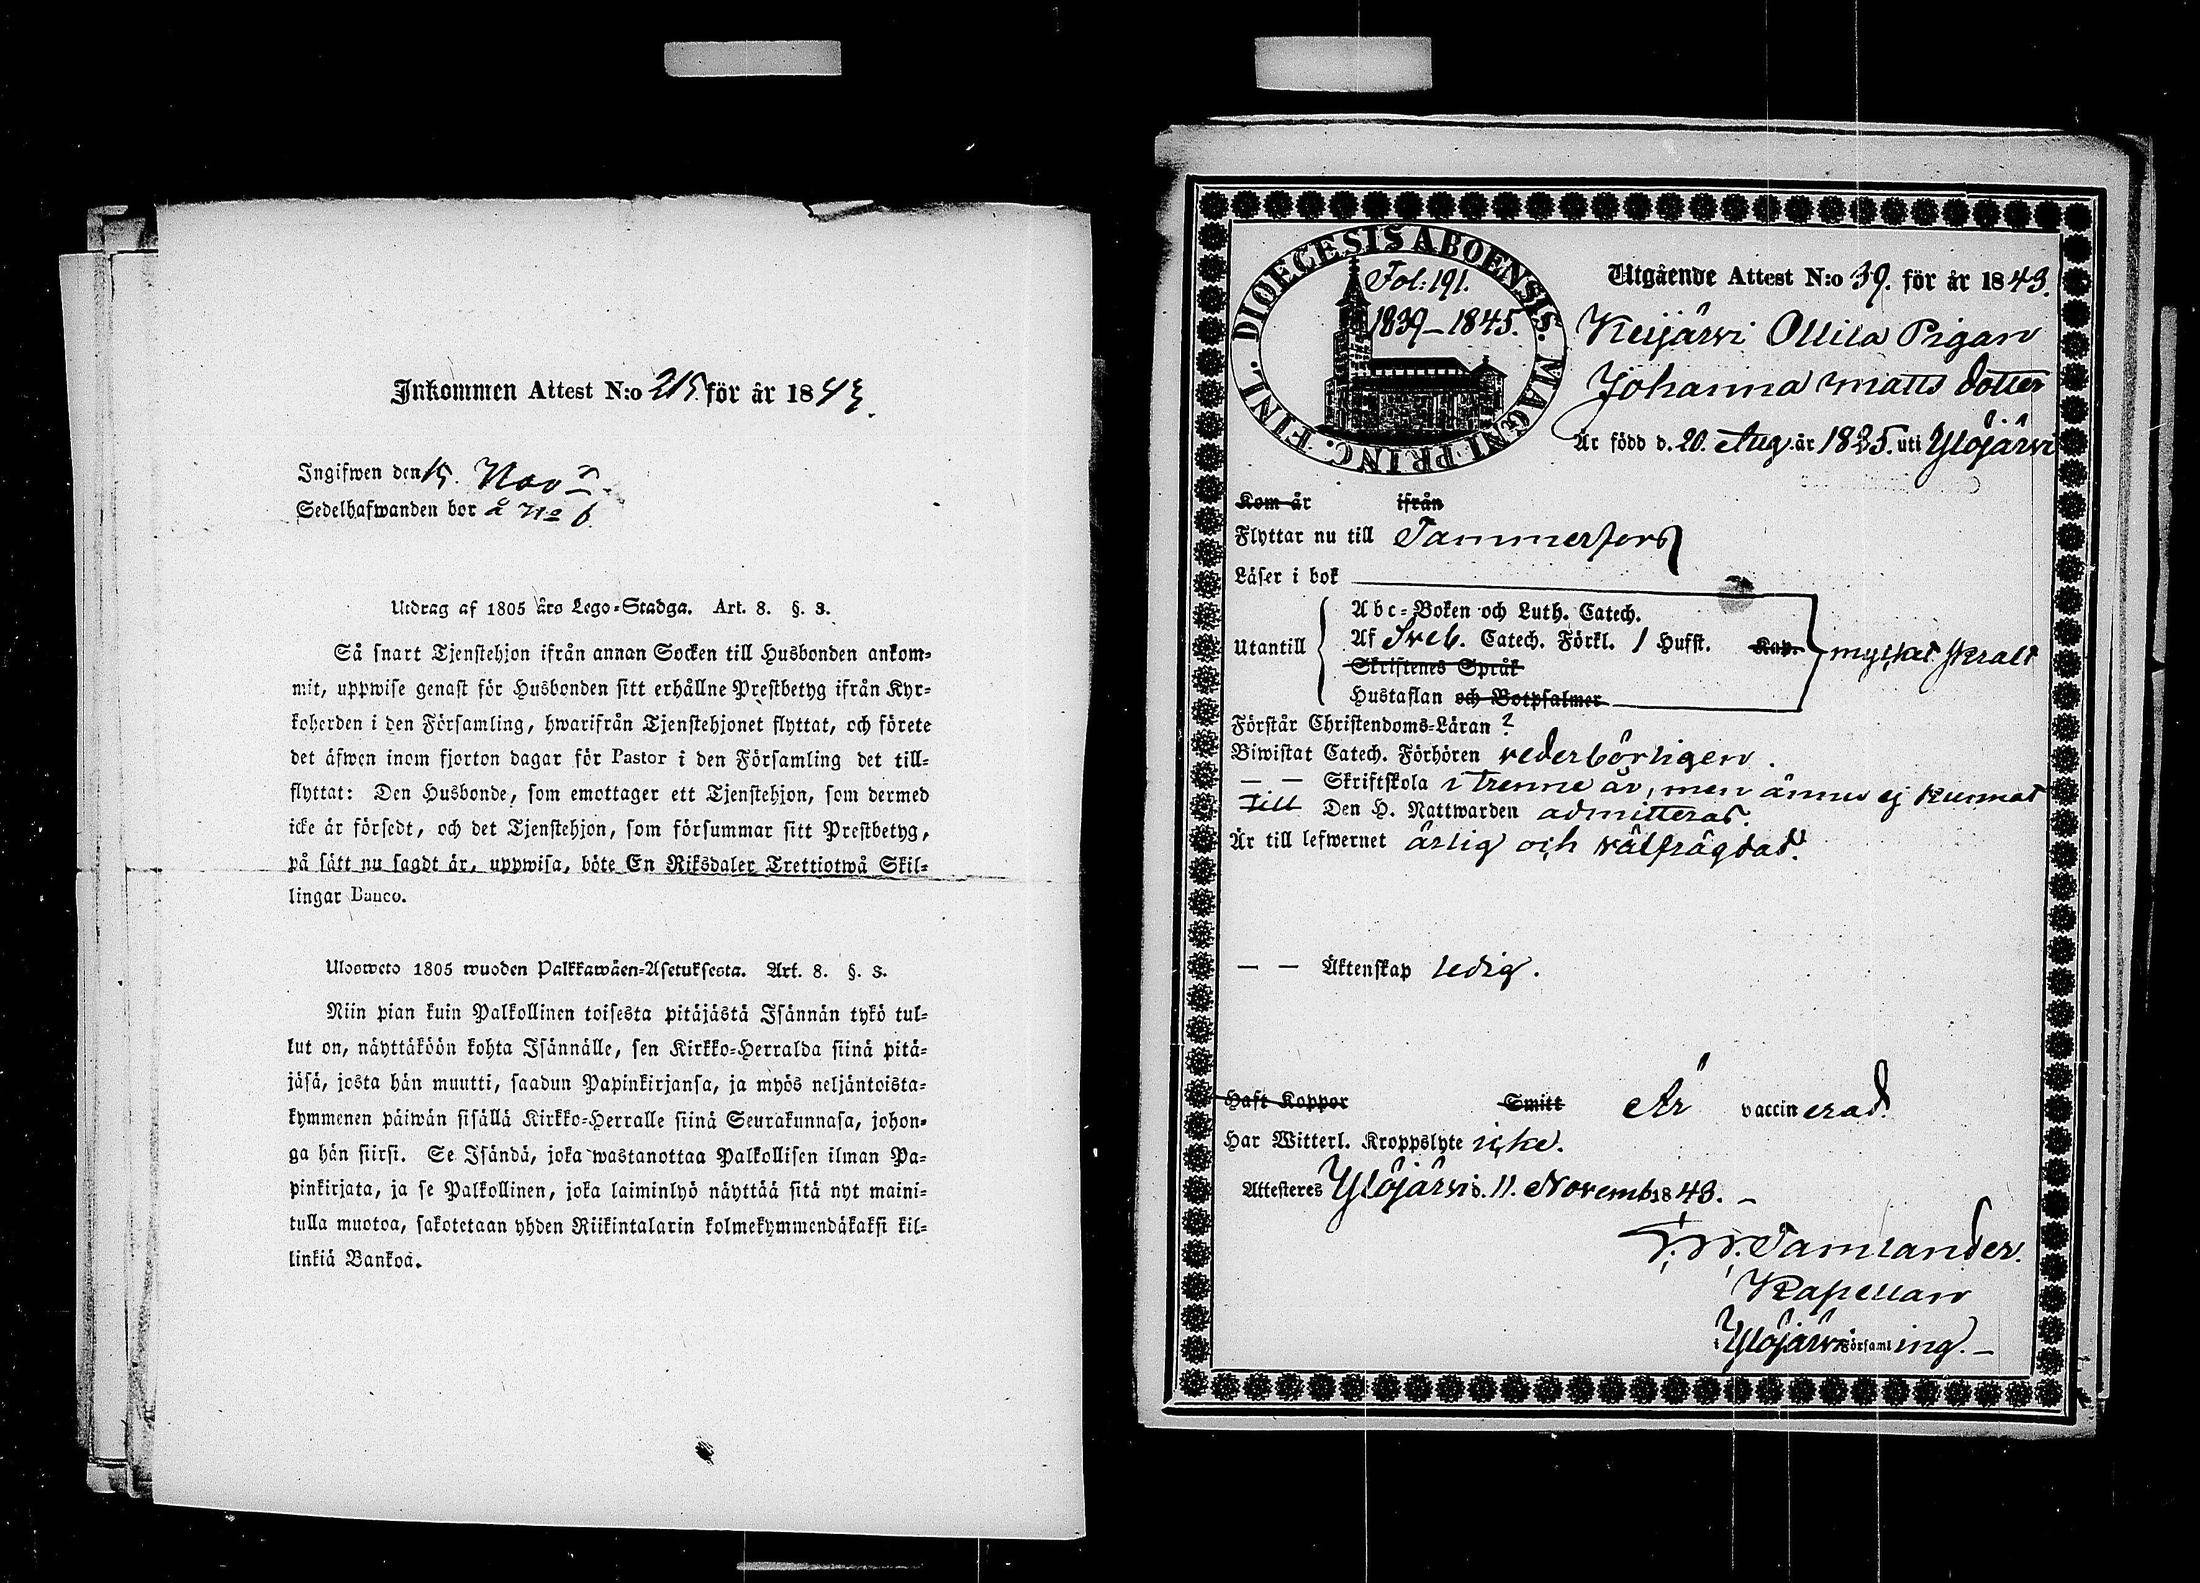 Inkommen Attest N:o 215. för år 1843.
Ingifwen den 15. Nov
Sedelhafwanden bor å No 6
Utdrag af 1805 års Lego-Stadga. Art. 8. §. 3.
Så snart Tjenstehjon ifrån annan Socken till Husbonden ankom-
mit, uppwise genast för Husbonden sitt erhållne Prestbetyg ifrån Kyr-
koherden i den Församling, hwarifrån Tjenstehjonet flyttat, och förete
det äfwen inom fjorton dagar för Pastor i den Församling det till-
flyttat: Den Husbonde, som emottager ett Tjenstehjon, som dermed
icke är försedt, och det Tjenstehjon, som försummar sitt Prestbetyg,
på sätt nu sagdt är, uppwisa, böte En Riksdaler Trettiotwå Skil-
lingar Banco.
Ulosweto 1805 wuoden Palkkawäen-Asetuksesta. Art. 8. §. 3.
Niin pian kuin Palkollinen toisesta pitäjästä Isännän tykö tul-
lut on, näyttäköön kohta Isännälle, sen Kirkko-Herralda siinä pitä-
jäsä, josta hän muutti, saadun Papinkirjansa, ja myös neljäntoista-
kymmenen päiwän sisällä Kirkko-Herralle siinä Seurakunnasa, johon-
ga hän siirsi. Se Isändä, joka wastanottaa Palkollisen ilman Pa-
pinkirjata, ja se Palkollinen, joka laiminlyö näyttää sitä nyt maini-
tulla muotoa, sakotetaan yhden Riikintalarin kolmekymmendäkaksi kil-
linkiä Bankoa.
DIOECESIS ABOENSIS. MAGNI PRINC. FINL.
Fol: 191.
1839-1845.
Utgående Attest N:o 39. för år 1843.
Keijärvi Ollila Pigan
Johanna Matts dotter
Är född d. 20. Aug. år 1825. uti Ylöjärvi
Kom år ifrån
Flyttar nu till Tammerfors
Läser i bok
Utantill
Abc-Boken och Luth. Catech.
Af Sveb. Catech. Förkl. 1 Hufst. Kap.
Skriftenes Språk
Hustaflan och Botpsalmer
mycket skralt
Förstår Christendoms-Läran ?
Biwistat Catech. Förhören vederbörligen.
— — Skriftskola i trenne år, men ännu ej kunnat
till Den H. Nattwarden admitteras.
Är till lefwernet ärlig och välfrägdad.
— — Äktenskap ledig.
Haft Koppor Smitt Är vaccinerad.
Har Witterl. Kroppslyte icke.
Attesteres Ylöjärvi d. 11. Novemb. 1843. —
Tamlander.
Kapellan
i Ylöjärvi Församling. —